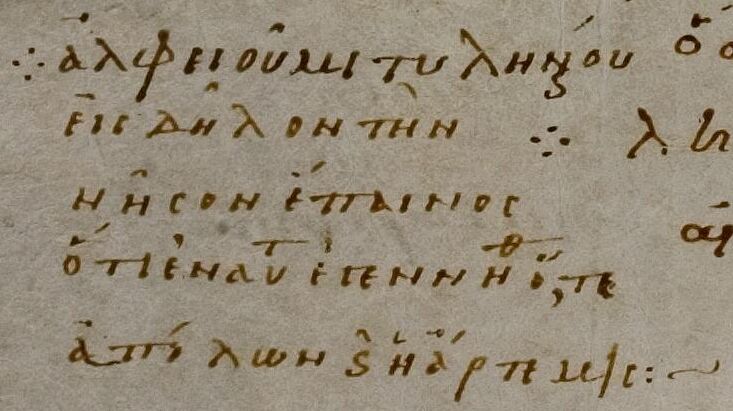 ⁘ ἀλφειοῦ μιτυληναίου
εἰς δῆλον τὴν ⁘
νῆσον ἔπαινος
ὅτι ἐν αὐτ ἐγεννήθ ὅ,τε
ἀπόλων ϗ ἡ ἄρτεμις:~